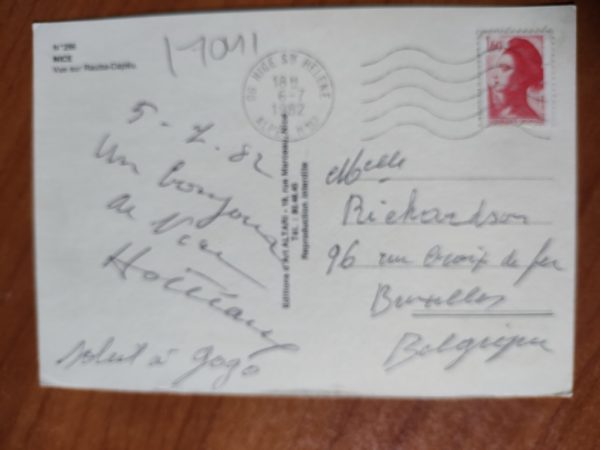 N° 290
NICE
17041
06 NICE ST HELENE
18H
6-7
1982
ALPES MMES
1,60
5-7.82
Un bonjour
de Nice
soleil à gogo
Editions d'Art ALTARI - 19, rue Marceau, Nice
Tél. : 80.48.45
Reproduction Interdite
Melle
Richardson
96 rue Croix de fer
Bruxelles
Belgique